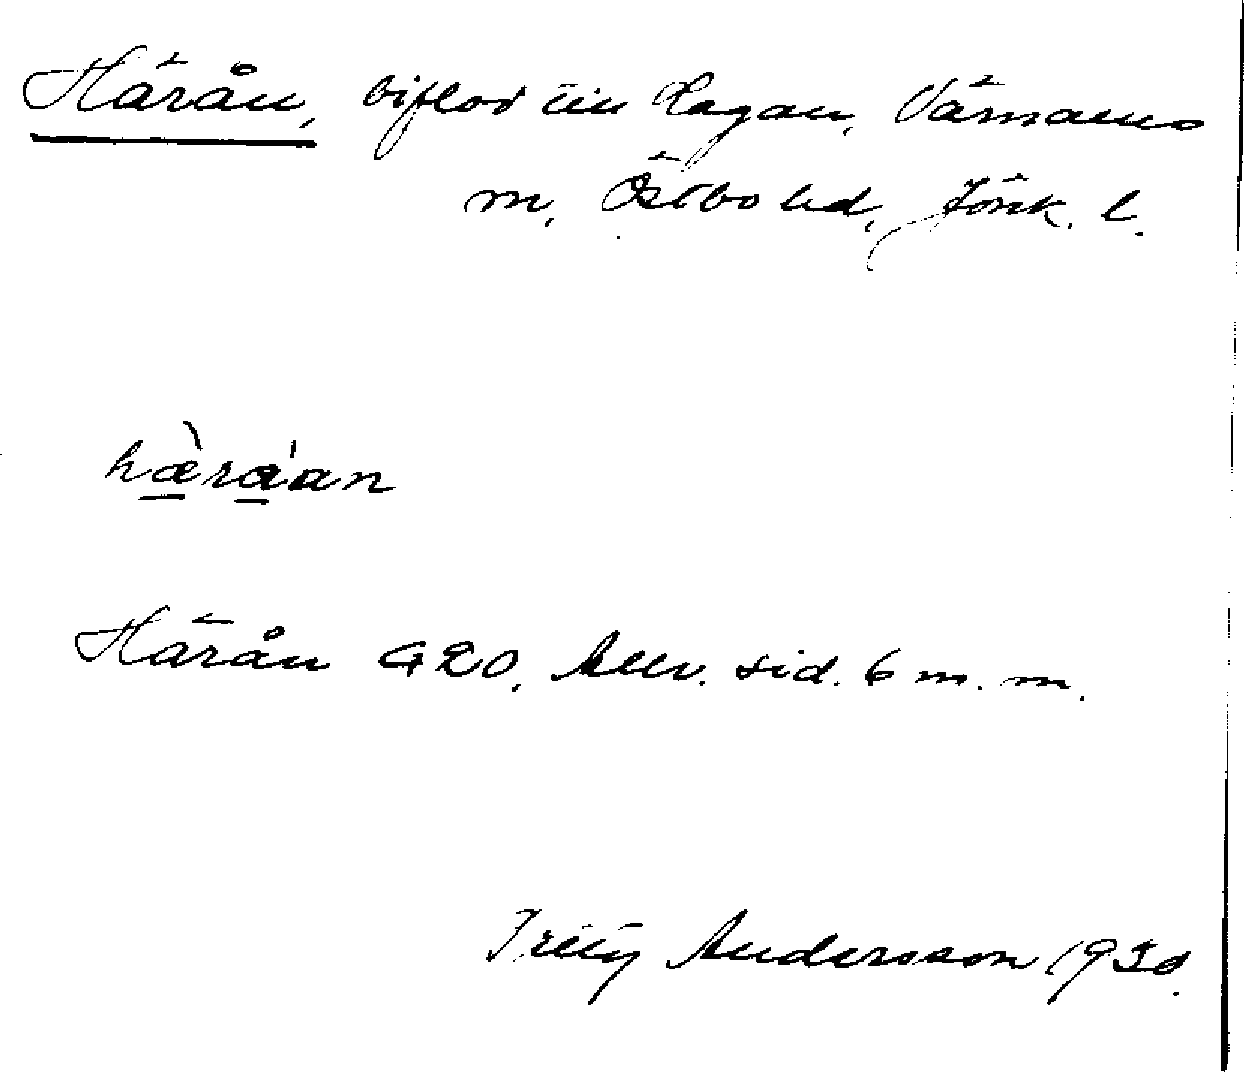 Härån, biflod till Lagan, Värnamo
m, Östbo hd, Jönk. l.
hæ̀ra̍an
Härån GEO, Allv. sid. 6 m. m.
Andersson 1930.